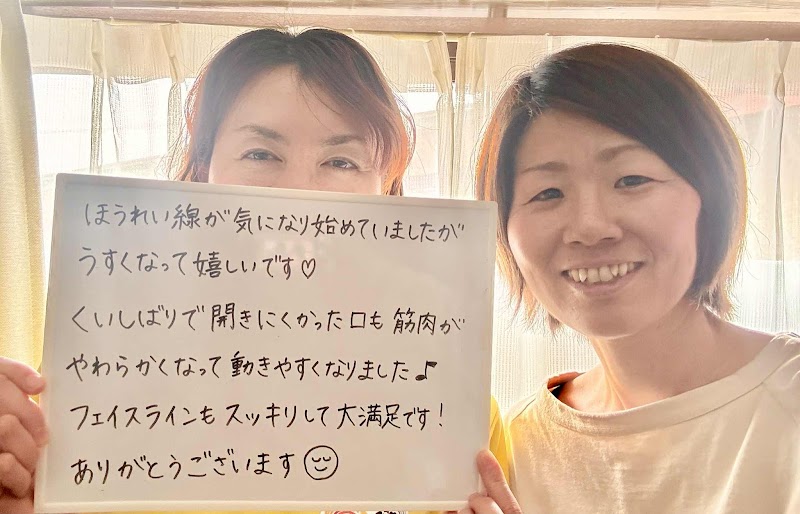 ほうれい線が気になり始めていましたが
うすくなって嬉しいです♡
くいしばりで開きにくかった口も筋肉が
やわらかくなって動きやすくなりました♪
フェイスラインもスッキリして大満足です！
ありがとうございます